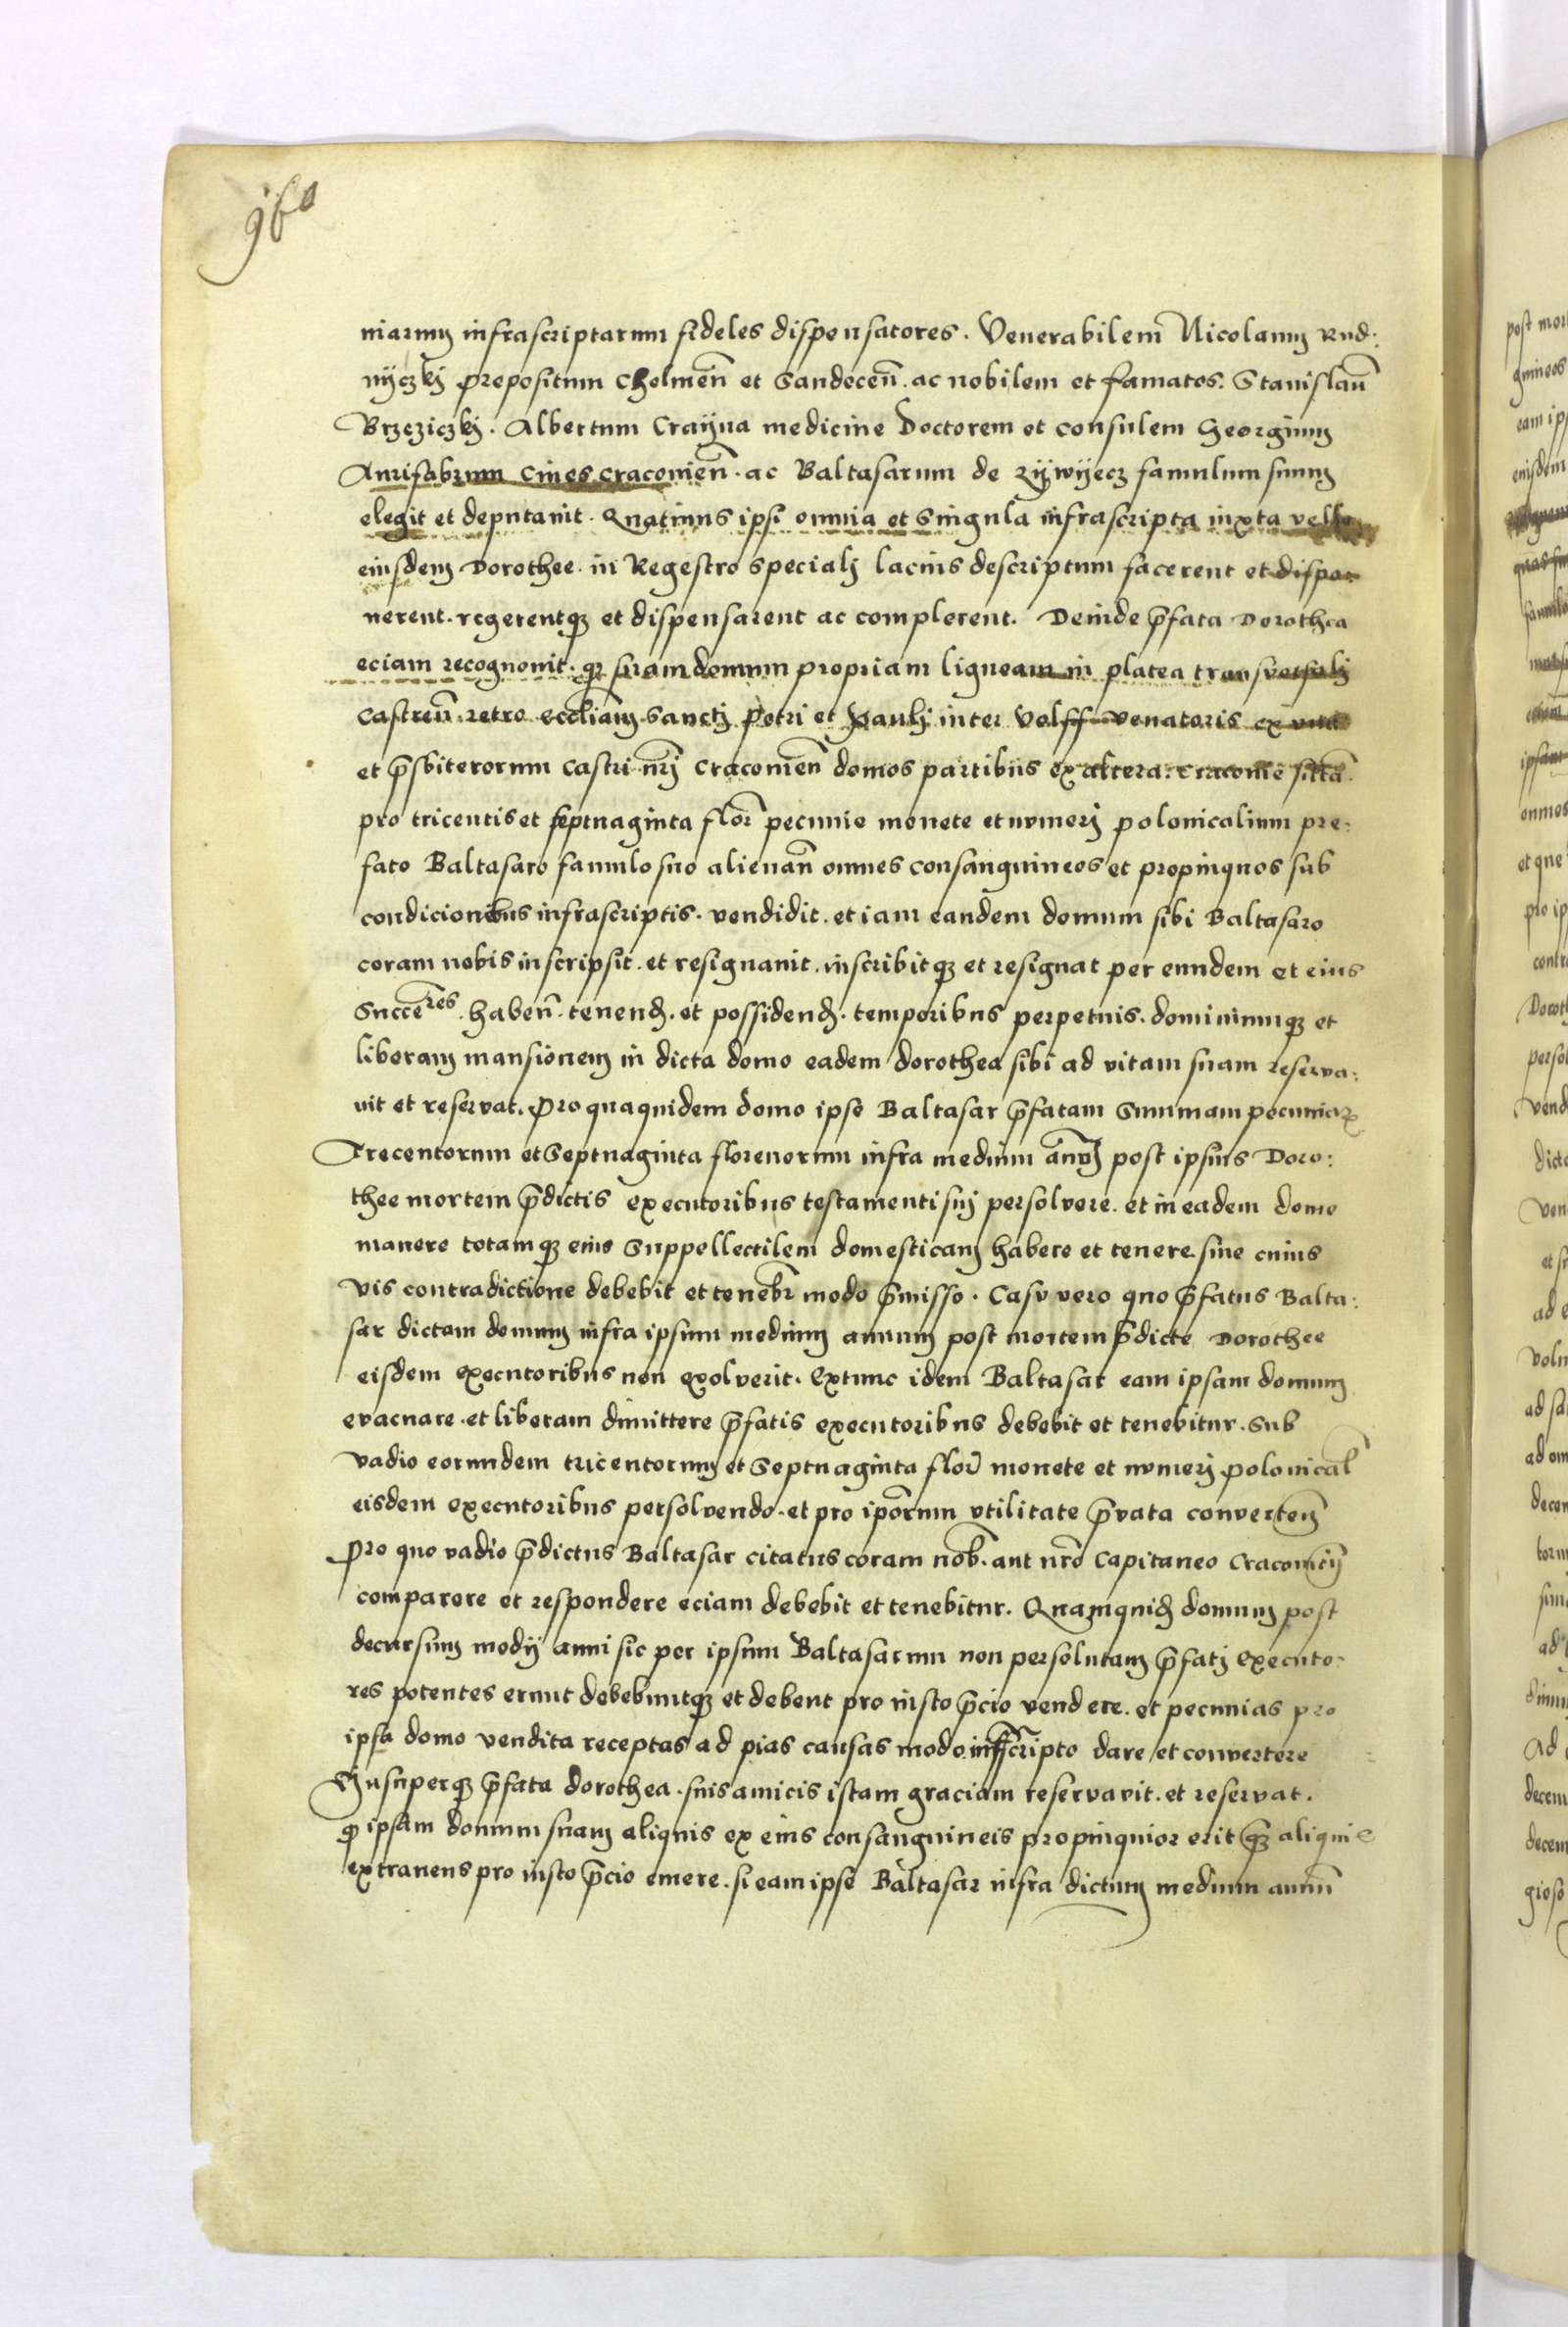 960
niarum infrascriptarum fideles dispensatores. Venerabilem Nicolaum Rud:
nyczkÿ prepositum Chelmeñ et Sandeceñ. ac nobilem et famatos. Stanislaũ
Brzeziczkÿ. Albertum Crayna medicine Doctorem et consulem Georgium
Aurifabrum Cives cracovieñ. ac Baltasarum de Zÿwÿecz famulum suum
elegit et deputavit. Quatinus ipsi omnia et singula infrascripta iuxta velle
eiusdem Dorothee. in Regestro specialj lacius descriptum facerent et dispo-
nerent. regerentqz et dispensarent ac complerent. Deinde p̃fata Dorothea
eciam recognovit. qz suam domum propriam ligneam in platea transversalj
Castreñ. retro eccl̃iam Sanctj Petri et Paulj inter Volff venatoris ex una
et p̃sbiterorum Castri nr̃j Cracovieñ domos partibus ex altera. Cracovie sitã
pro tricentis et septuaginta flor̃ pecunie monete et numerj polonicalium pre-
fato Baltasaro famulo suo alienañ omnes consanguineos et propinquos sub
condicionibus infrascriptis. vendidit. et iam eandem domum sibi Baltasaro
coram nobis inscripsit. et resignavit. inscribitqz et resignat per eundem et eius
Succe͠res. habeñ. tenend̃. et possidend̃. temporibus perpetuis. dominiumqz et
liberam mansionem in dicta domo eadem dorothea sibi ad vitam suam reserva:
vit et reservat. Pro quaquidem domo ipse Baltasar p̃fatam Summam pecuniaꝝ
Trecentorum et Septuaginta florenorum infra medium añj post ipsius Doro:
thee mortem p̃dictis executoribus testamenti suj persolvere. et in eadem domo
manere totamqz eius Suppellectilem domesticam habere et tenere. sine cuius
vis contradictione debebit et teneb̃r modo p̃misso. Casu vero quo p̃fatus Balta:
sar dictam domum infra ipsum medium annum post mortem p̃dicte Dorothee
eisdem executoribus non exolverit. Extunc idem Baltasar eam ipsam domum
evacuare. et liberam dimittere p̃fatis executoribus debebit et tenebitur. Sub
vadio eorundem tricentorum et Septuaginta flor̃ monete et numerj polonical̃
eisdem executoribus persolvendo. et pro ip̃orum utilitate p̃vata converteñ
Pro quo vadio p̃dictus Baltasar citatus coram nob̃. aut nr̃o Capitaneo Cracovieñ
comparere et respondere eciam debebit et tenebitur. Quamquid̃ domum post
decursum medÿ anni sic per ipsum Baltasarum non persolutam p̃fatj executo-
res potentes erunt debebuntqz et debent pro iusto p̃cio vendere. et pecunias pro
ipsa domo vendita receptas ad pias causas modo inf̃scripto dare et convertere
Insuperqz p̃fata dorothea. suis amicis istam graciam reservavit. et reservat.
ꝙ ipsam domum suam aliquis ex eius consanguineis propinquior erit qz̃ aliquis
extraneus pro iusto p̃cio emere. si eam ipse Baltasar infra dictum medium annũ